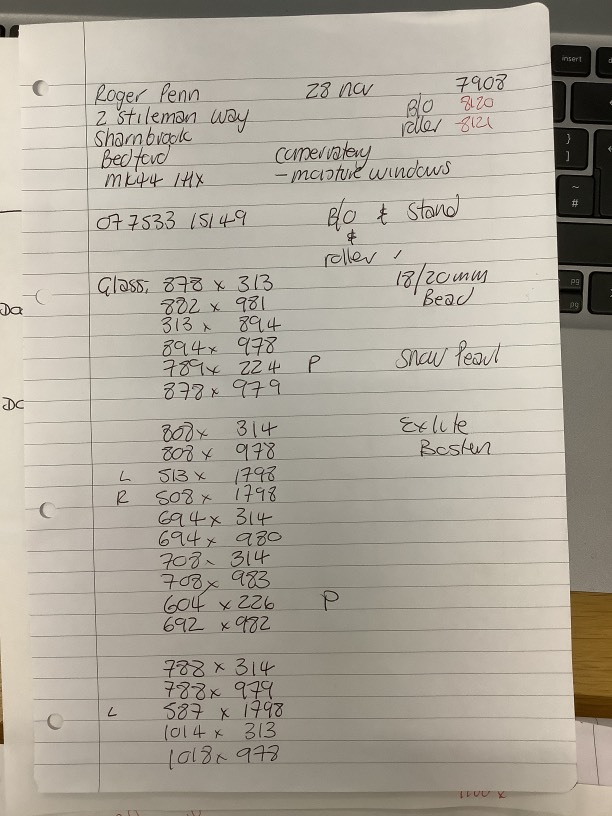 Roger Penn 28 nov 7908
2 Stileman way B/O 8120
Sharnbrook roller 8121
Bedford conservatory
MK44 1HX - moisture windows
077533 15149 B/O & Stand
&
roller
Glass: 878 x 313 18/20mm
882 x 981 Bead
313 x 894
894 x 978 Snow Pearl
789 x 224 P
878 x 979
808 x 314 Exlite
808 x 978 Boston
L 513 x 1798
R 508 x 1798
694 x 314
694 x 980
708 x 314
708 x 983
604 x 226 P
692 x 982
788 x 314
788 x 979
L 587 x 1798
1014 x 313
1018 x 978
insert
}
]
~
#
pg
pg
Da
Dc